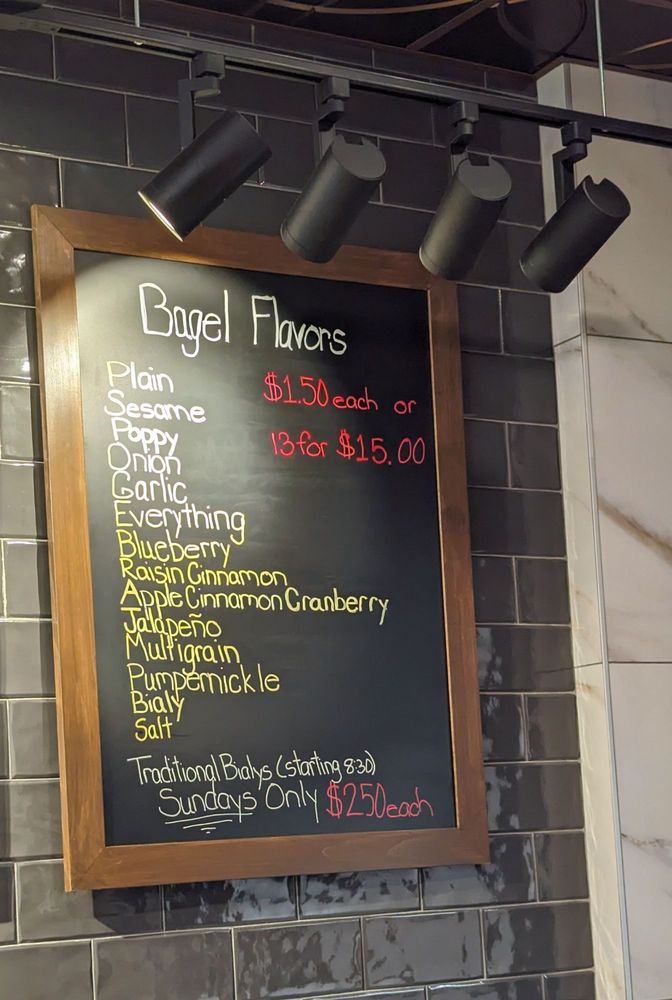 Bagel Flavors
Plain
$1.50 each or
Sesame
Poppy
13 for $15.00
Onion
Garlic
Everything
Blueberry
Raisin Cinnamon
Apple Cinnamon Cranberry
Jalapeño
Multigrain
Pumpernickle
Bialy
Salt
Traditional Bialys (starting 8:30)
Sundays Only $250 each